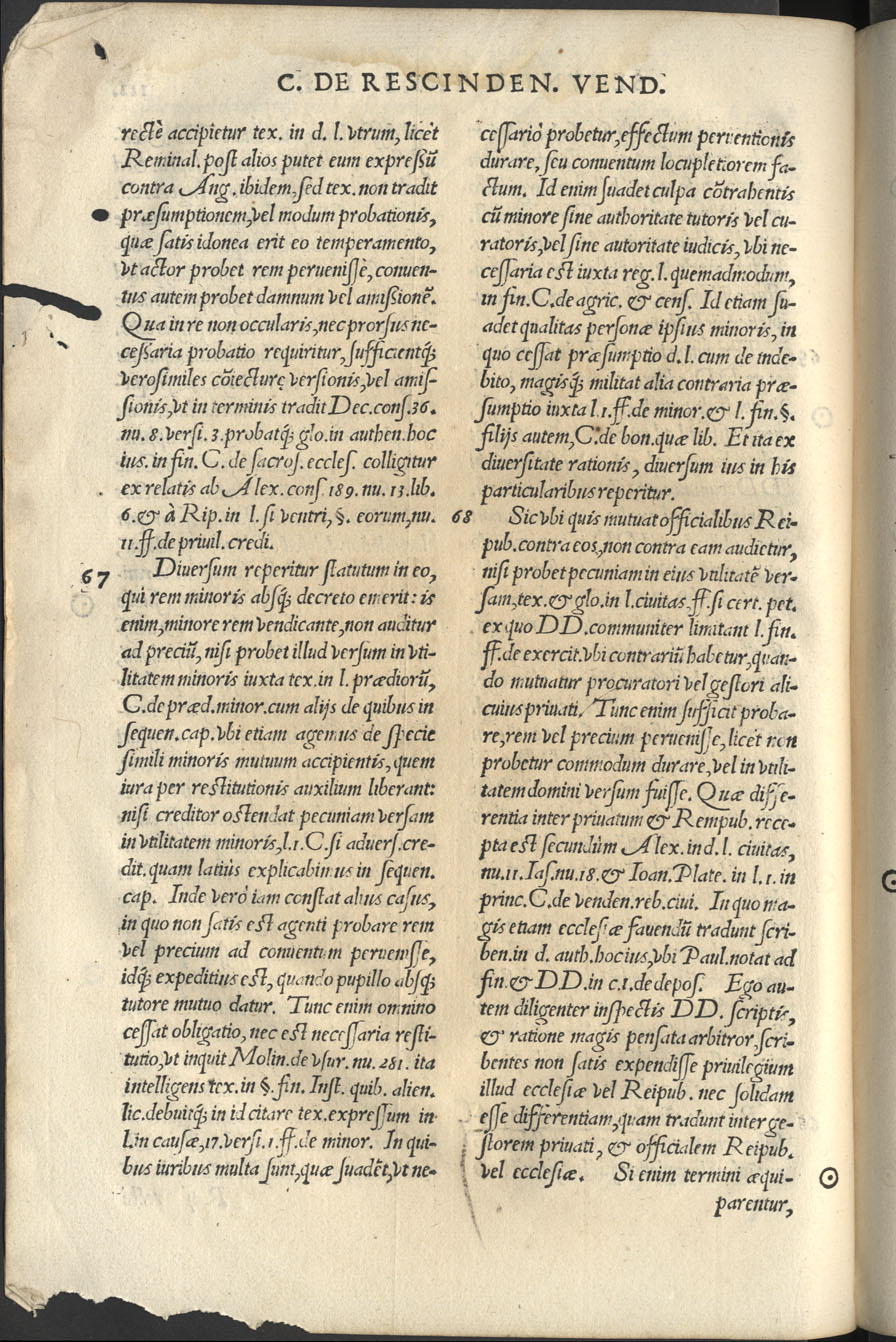 C. DE RESCINDEN. VEND.
rectè accipietur tex. in d. l. vtrum, licèt
Reminal. post alios putet eum expressū
contra Ang. ibidem, sed tex. non tradit
præsumptionem, vel modum probationis,
quæ satis idonea erit eo temperamento,
vt actor probet rem peruenisse, conuen-
tus autem probet damnum vel amissionē.
Qua in re non occularis, nec prorsus ne-
cessaria probatio requiritur, sufficientq́;
verosimiles cōiecturę versionis, vel amis-
sionis, vt in terminis tradit Dec. cons. 36.
nu. 8. versi. 3. probatq́; glo. in authen. hoc
ius. in fin. C. de sacros. eccles. colligitur
ex relatis ab Alex. cons. 189. nu. 13. lib.
6. & à Rip. in l. si ventri, §. eorum, nu.
11. ff. de priuil. credi.
67 Diuersum reperitur statutum in eo,
qui rem minoris absq́; decreto emerit: is
enim, minore rem vendicante, non auditur
ad preciū, nisi probet illud versum in vti-
litatem minoris iuxta tex. in l. prædiorū,
C. de præd. minor. cum alijs de quibus in
sequen. cap. vbi etiam agemus de specie
simili minoris mutuum accipientis, quem
iura per restitutionis auxilium liberant:
nisi creditor ostendat pecuniam versam
in vtilitatem minoris, l. 1. C. si aduers. cre-
dit. quam latiùs explicabimus in sequen.
cap. Inde verò iam constat alius casus,
in quo non satis est agenti probare rem
vel precium ad conuentum peruenisse,
idq́; expeditius est, quando pupillo absq́;
tutore mutuo datur. Tunc enim omnino
cessat obligatio, nec est necessaria resti-
tutio, vt inquit Molin. de vsur. nu. 281. ita
intelligens tex. in §. fin. Inst. quib. alien.
lic. debuitq́; in id citare tex. expressum in
l. in causæ, 17. versi. 1. ff. de minor. In qui-
bus iuribus multa sunt, quæ suadēt, vt ne-
cessariò probetur, effectum peruentionis
durare, seu conuentum locupletiorem fa-
ctum. Id enim suadet culpa cōtrahentis
cū minore sine authoritate tutoris vel cu-
ratoris, vel sine autoritate iudicis, vbi ne-
cessaria est iuxta reg. l. quemadmodum,
in fin. C. de agric. & cens. Id etiam su-
adet qualitas personæ ipsius minoris, in
quo cessat præsumptio d. l. cum de inde-
bito, magisq́; militat alia contraria præ-
sumptio iuxta l. 1. ff. de minor. & l. fin. §.
filijs autem, C. de bon. quæ lib. Et ita ex
diuersitate rationis, diuersum ius in his
particularibus reperitur.
68 Sic vbi quis mutuat officialibus Rei-
pub. contra eos, non contra eam audietur,
nisi probet pecuniam in eius vtilitatē ver-
sam, tex. & glo. in l. ciuitas. ff. si cert. pet.
ex quo DD. communiter limitant l. fin.
ff. de exercit. vbi contrariū habetur, quan-
do mutuatur procuratori vel gestori ali-
cuius priuati. Tunc enim sufficit proba-
re, rem vel precium peruenisse, licèt non
probetur commodum durare, vel in vtili-
tatem domini versum fuisse. Quæ diffe-
rentia inter priuatum & Rempub. rece-
pta est secundùm Alex. in d. l. ciuitas,
nu. 11. Ias. nu. 18. & Ioan. Plate. in l. 1. in
princ. C. de venden. reb. ciui. In quo ma-
gis etiam ecclesiæ fauendū tradunt scri-
ben. in d. auth. hoc ius, vbi Paul. notat ad
fin. & DD. in c. 1. de depos. Ego au-
tem diligenter inspectis DD. scriptis,
& ratione magis pensata arbitror, scri-
bentes non satis expendisse priuilegium
illud ecclesiæ vel Reipub. nec solidam
esse differentiam, quam tradunt inter ge-
storem priuati, & officialem Reipub.
vel ecclesiæ. Si enim termini æqui-
parentur,